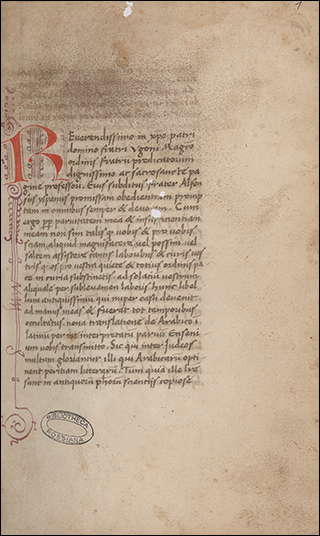 1
Reverendissimo in xpo patri
domino fratri Vgoni Magro
ordinis fratru predicatorum
dignissimo ac sacrosante pa
gine professori. Eius subditus frater Alfon
sus yspanus promissam obedientiam promp
tam in omnibus semper & devotam. Cum
ego pp parvitatem mea & insufficientiam
meam non sim talis q vobis & pro vobis
signa aliqua magnifacere vel possim vel
saltem assistere tantis laboribus & curis ves
tris qs pro vestra quiete & totius ordinis pa
ce in curia substinetis ad solatiu vestrum
aliquale per sublevamen laboris hunc libel
lum antiquissimu qui nuper casu devenit
ad manus meas & fuerat tot temporibus
ocultatus nova translatione de Arabico i
latinu per me interpretatu parvu Ensoni
um vobis transmitto. Sic qui inter Judeos
multum gloriantur illi qui Arabicaru opti
nent peritiam litteraru. Tum quia ille libe
sunt in antiquoru phoru scientiis copiose
BIBLIOTHECA
ROSSIANA